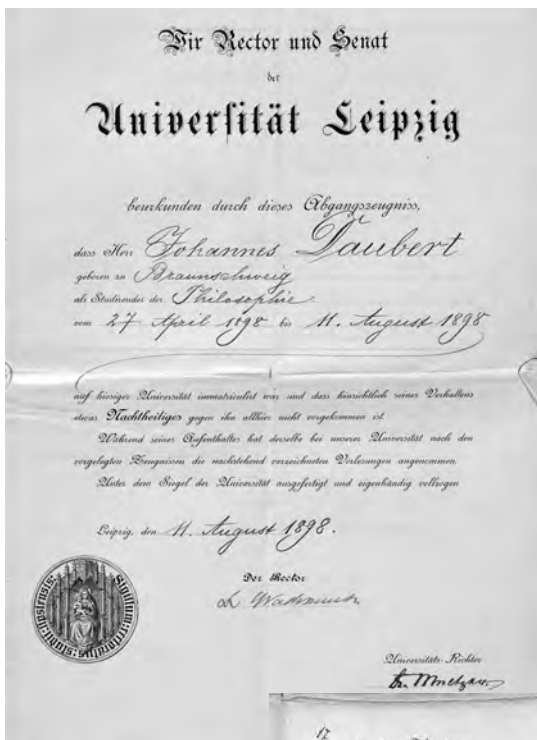 Wir Rector und Senat
der
Universität Leipzig
beurkunden durch dieses Abgangszeugniss,
dass Herr Johannes Daubert
geboren zu Braunschweig
als Studirender der Philosophie
vom 27 April 1898 bis 11. August 1898
auf hiesiger Universität immatriculirt war und dass hinsichtlich seines Verhaltens
etwas Nachtheiliges gegen ihn allhier nicht vorgekommen ist.
Während seines Aufenthaltes hat derselbe bei unserer Universität nach den
vorgelegten Zeugnissen die nachstehend verzeichneten Vorlesungen angenommen.
Unter dem Siegel der Universität ausgefertigt und eigenhändig vollzogen
Leipzig, den 11. August 1898.
Der Rector
Universitäts-Richter
17